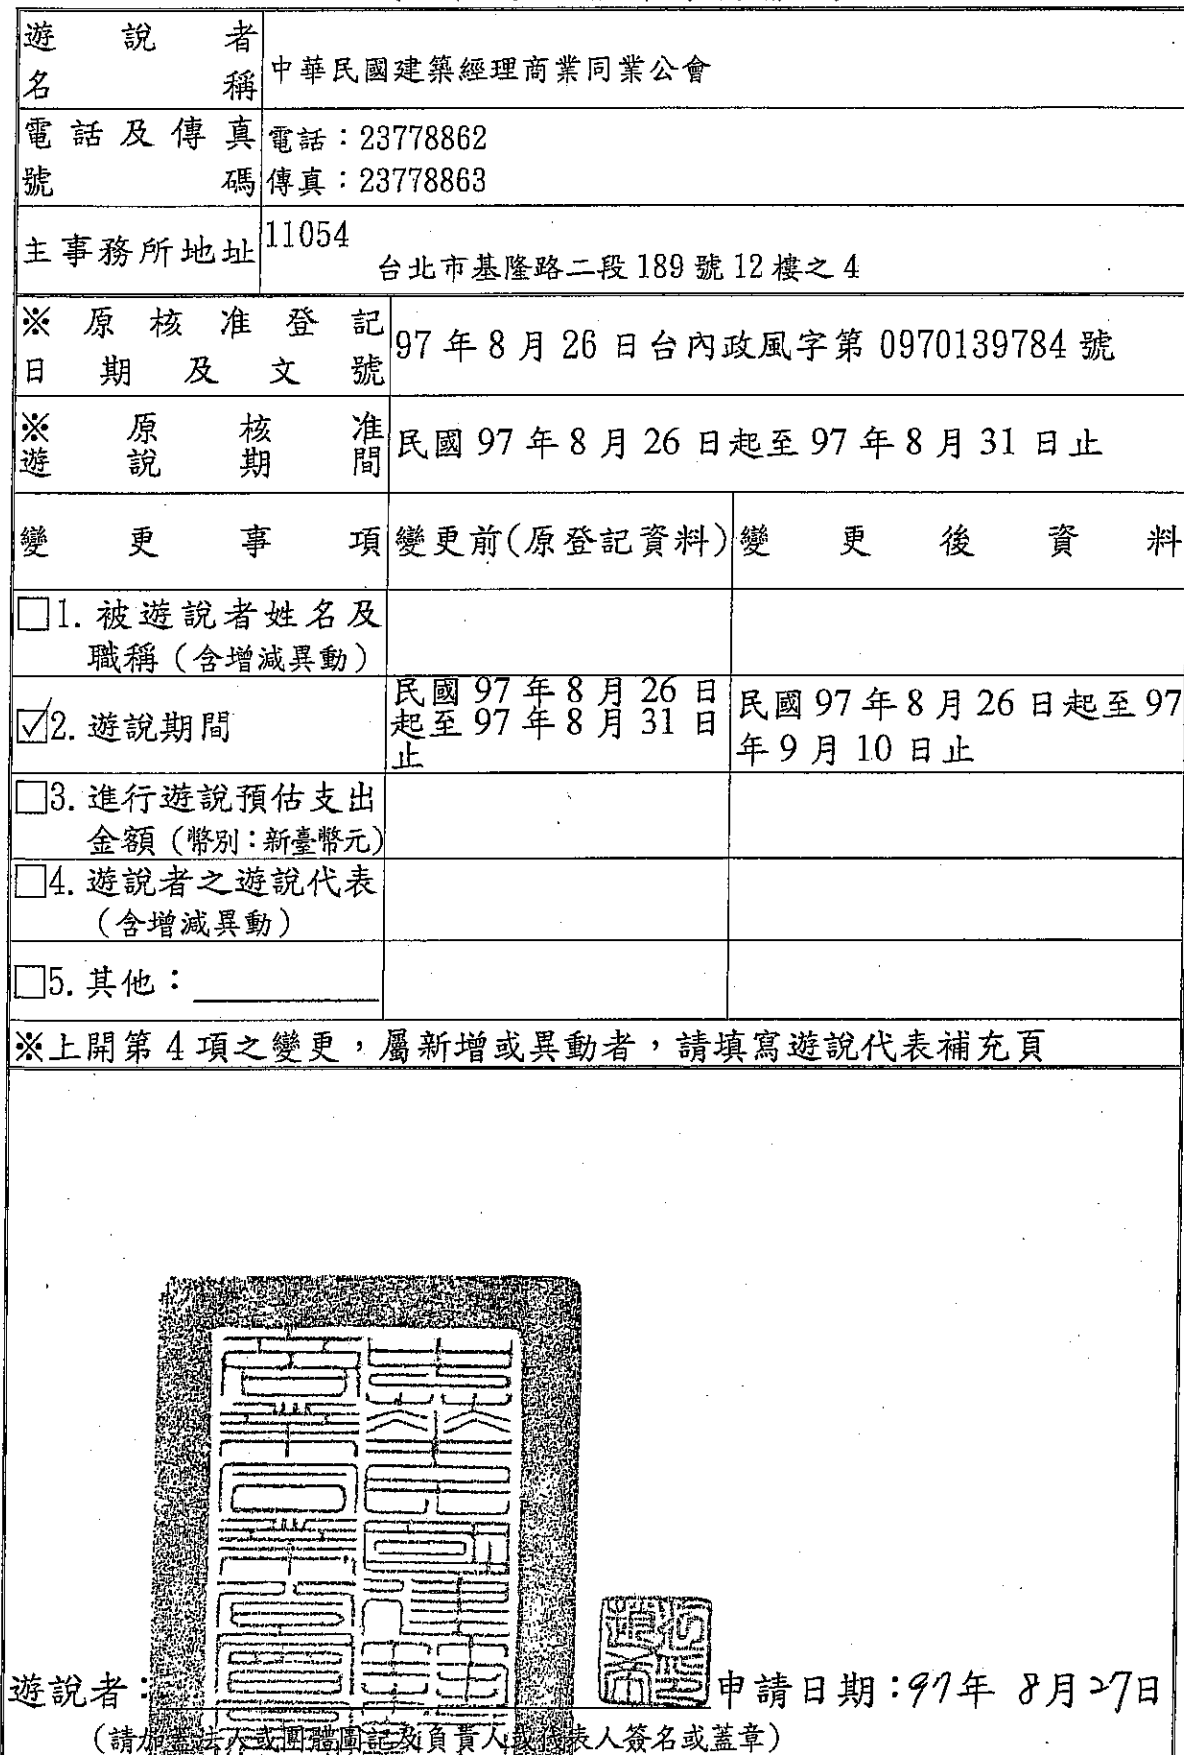 遊說者
名稱
中華民國建築經理商業同業公會
電話及傳真
號碼
電話：23778862
傳真：23778863
主事務所地址
11054
台北市基隆路二段 189 號 12 樓之 4
※原核准登記
日期及文號
97 年 8 月 26 日台內政風字第 0970139784 號
※原核准
遊說期間
民國 97 年 8 月 26 日起至 97 年 8 月 31 日止
變更事項
變更前(原登記資料)
變更後資料
□1. 被遊說者姓名及
職稱（含增減異動）
☑2. 遊說期間
民國 97 年 8 月 26 日
起至 97 年 8 月 31 日
止
民國 97 年 8 月 26 日起至 97
年 9 月 10 日止
□3. 進行遊說預估支出
金額（幣別：新臺幣元）
□4. 遊說者之遊說代表
（含增減異動）
□5. 其他：
※上開第 4 項之變更，屬新增或異動者，請填寫遊說代表補充頁
遊說者：
申請日期：97年 8月27日
（請加蓋法人或團體圖記及負責人或代表人簽名或蓋章）